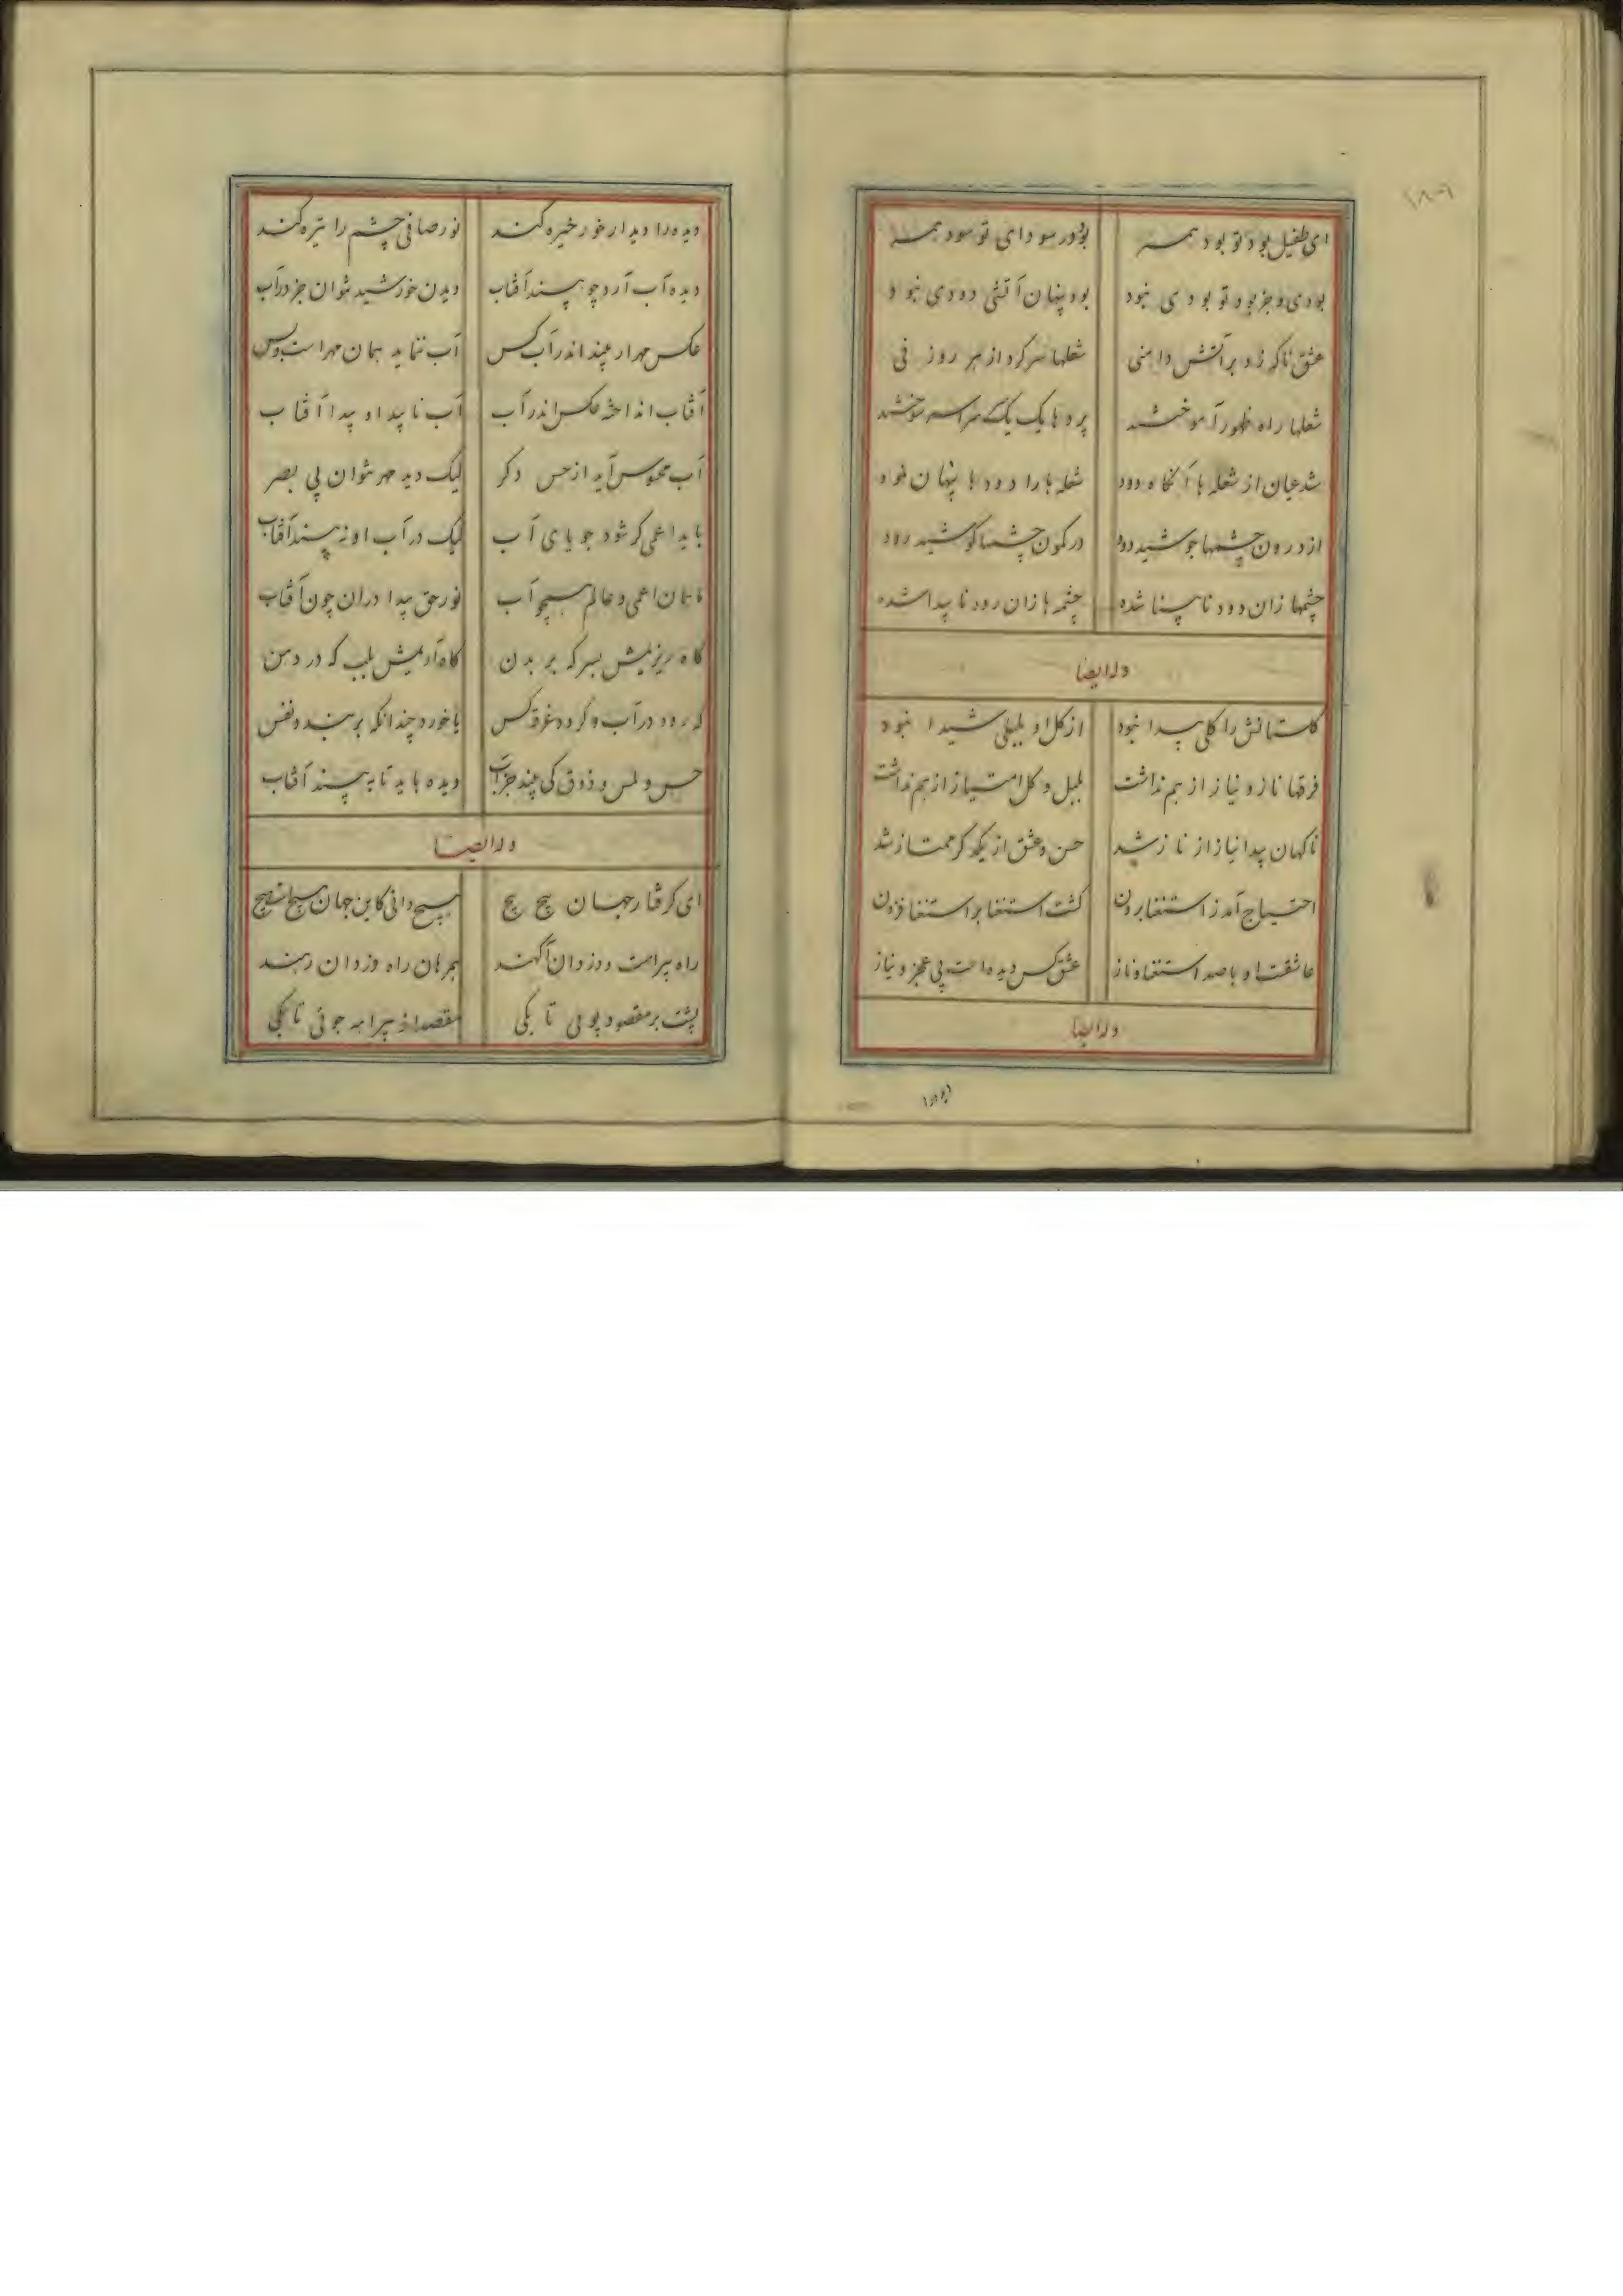 ای طفیل بود تو بود همه	بود در سودای تو سود همه
بودی و جز بود تو بودی نبود	بود پنهان آتشی دودی نبود
عشق ناکه زد بر آتش دامنی	شعلها سر کرد از هر روزنی
شعلها راه ظهور آموختند	پردها یک یک سراسر سوختند
شد عیان از شعله ها آنکاه دود	شعله ها را دودها پنهان نمود
از درون چشمها جوشید دود	در کمون چشمها کوشید رود
چشمها زان دود نابینا شده	چشمه ها زان رود ناپیدا شده
وله ایضا
کلستانش را کلی پیدا نبود	از کل او بلبلی شیدا نبود
فرقها ناز و نیاز از هم نداشت	بلبل و کل امتیاز از هم نداشت
ناکهان پیدا نیاز از ناز شد	حسن و عشق از یکدکر ممتاز شد
احتیاج آمد ز استغنا برون	کشت استغنا بر استغنا فزون
عاشقست او با صد استغنا و ناز	عشق کس دیده است بی عجز و نیاز
وله ایضا
دیده را دیدار خور خیره کند	نور صافی چشم را تیره کند
دیده آب آرد چو بیند آفتاب	دیدن خورشید نتوان جز در آب
عکس مهر ار بیند اندر آب کس	آب ننماید همان مهر است و بس
آفتاب انداخته عکس اندر آب	آب ناپیدا و پیدا آفتاب
آب محسوس آید از حس دکر	لیک دید مهر نتوان بی بصر
باید اعمی کر شود جویای آب	لیک در آب او نه بیند آفتاب
اعمی و عالم همچو آب	نور حق پیدا در آن چون آفتاب
کاه ریزیمش بسر که بر بدن	کاه آریمش بلب که در دهن
که رود در آب و کردد غرقه کس	یا خورد چندانکه بر بندد نفس
حس و لمس و ذوق کی بیند جز آب	دیده باید تا به بیند آفتاب
وله ایضا
ای کرفتار جهان هیچ هیچ	هیچ دانی کاین جهان هیچ است هیچ
راه بیراهست و دزدان آکهند	همرهان راه دزدان رهند
پشت بر مقصود پوئی تا بکی	مقصد از بیراهه جوئی تا بکی